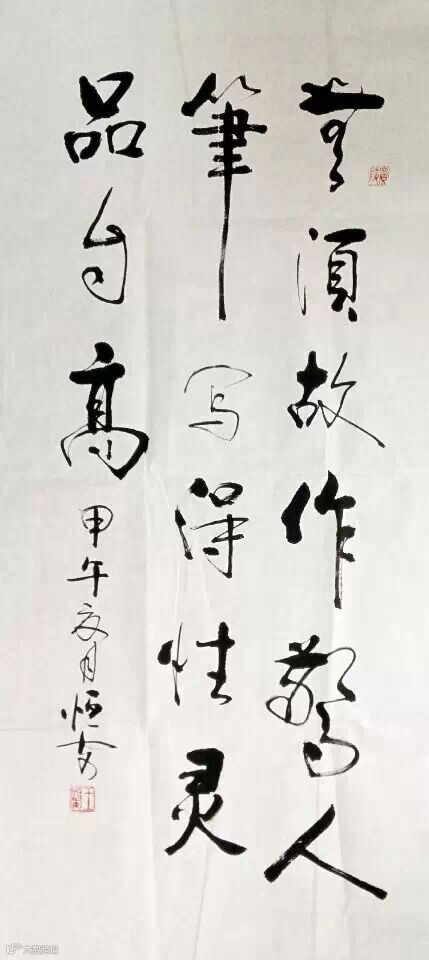 無須故作驚人
筆写得性灵
品自高
甲午夏月恒安